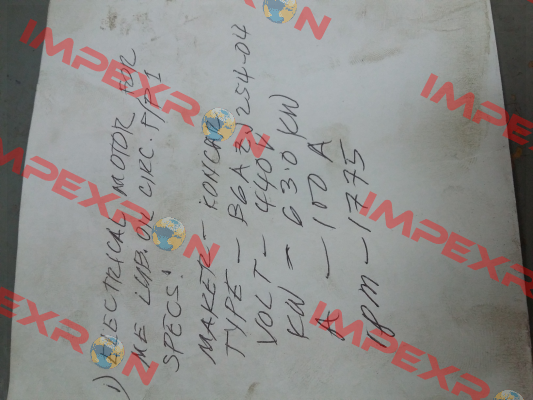 1) ELECTRICAL MOTOR FOR
ME LUB. OIL CIRC. P/P 1
SPECS:
MAKER - KONCAR
TYPE - B6AZJ254-04
VOLT - 440V
KW - 63.0 KW
A - 100 A
rpm - 1775
IMPEXRON
IMPEXRON
IMPEXRON
IMPEXRON
IMPEXRON
IMPEXRON